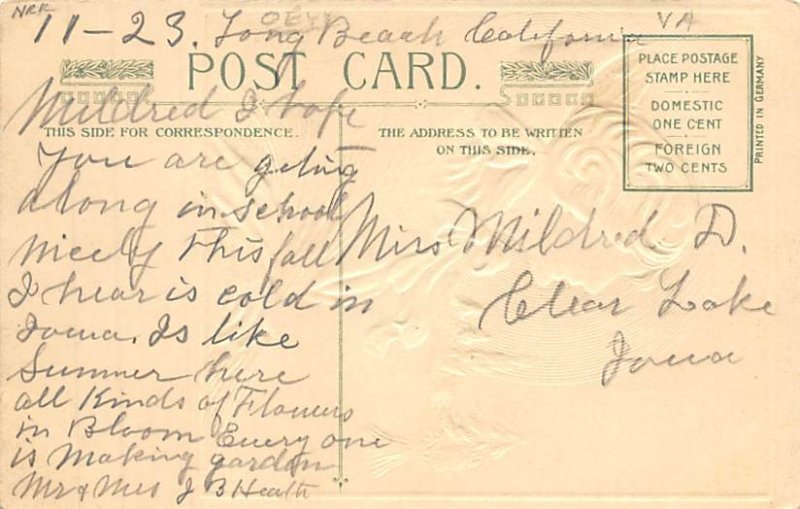 NRR
VA
11-23. Long Beach California
POST CARD.
PLACE POSTAGE
STAMP HERE
DOMESTIC
ONE CENT
FOREIGN
TWO CENTS
PRINTED IN GERMANY
THIS SIDE FOR CORRESPONDENCE.
THE ADDRESS TO BE WRITTEN
ON THIS SIDE.
Mildred I hope
You are geting
along in school
nicely This fall
I hear is cold in
Iowa. Is like
Summer here
all Kinds of Flowers
in Bloom Every one
is making garden
Mr & Mrs J B Heath
Miss Mildred D.
Clear Lake
Iowa